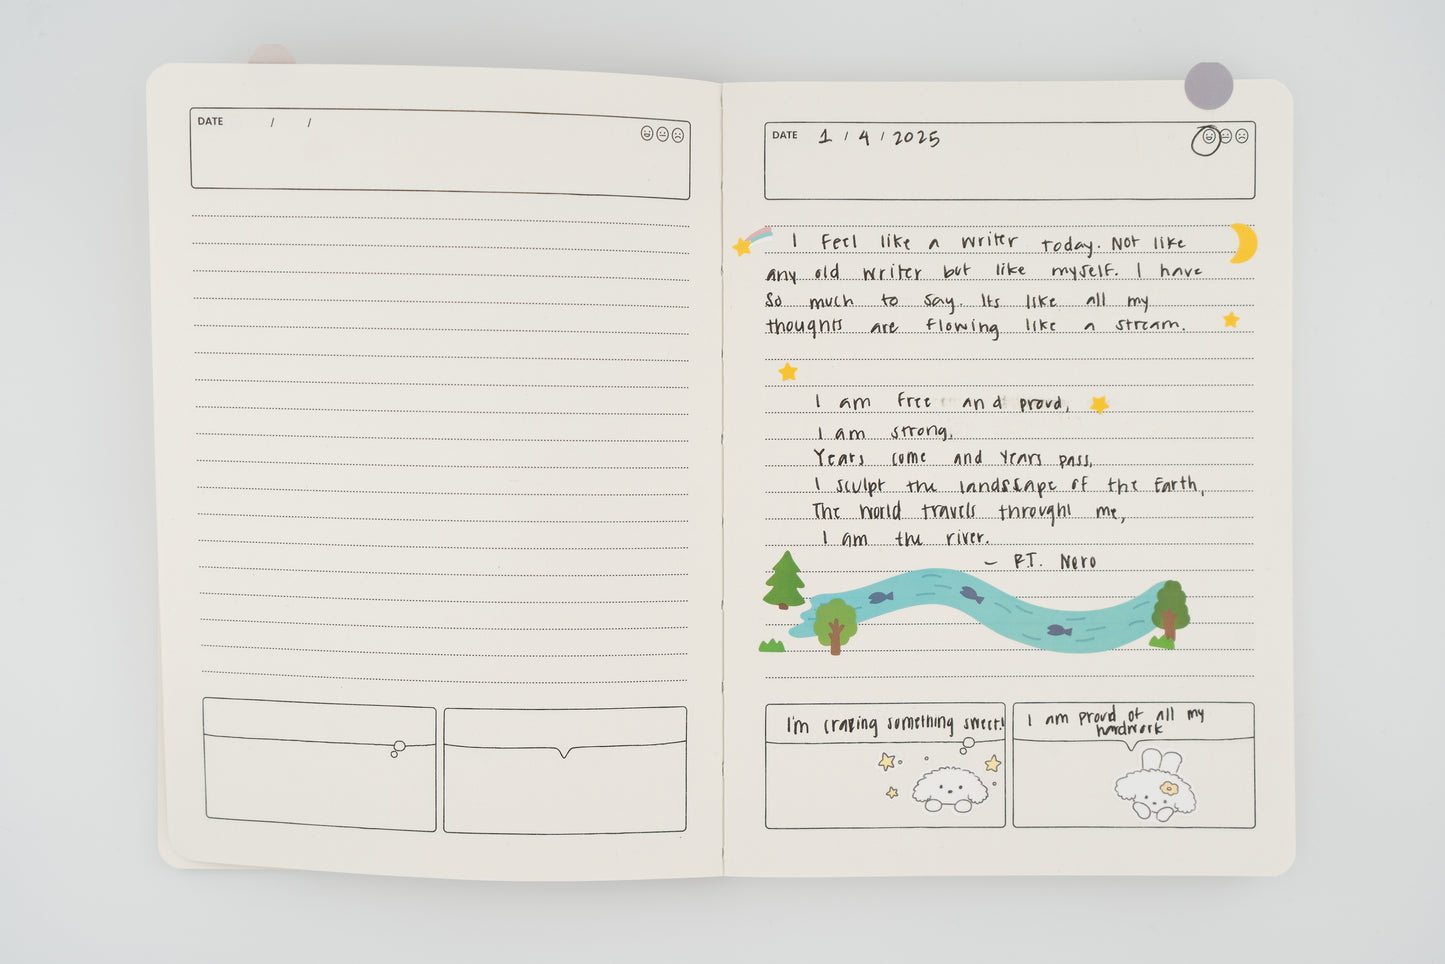 DATE / /
DATE 1 / 4 / 2025
I Feel like a writer today. Not like
any old writer but like myself. I have
So much to say. Its like all my
thoughts are flowing like a stream.
I am free and proud,
I am strong,
Years come and years pass,
I sculpt the landscape of the Earth,
The world travels throught me,
I am the river.
– P.T. Nero
I'm craving something sweet!
I am proud of all my
hardwork